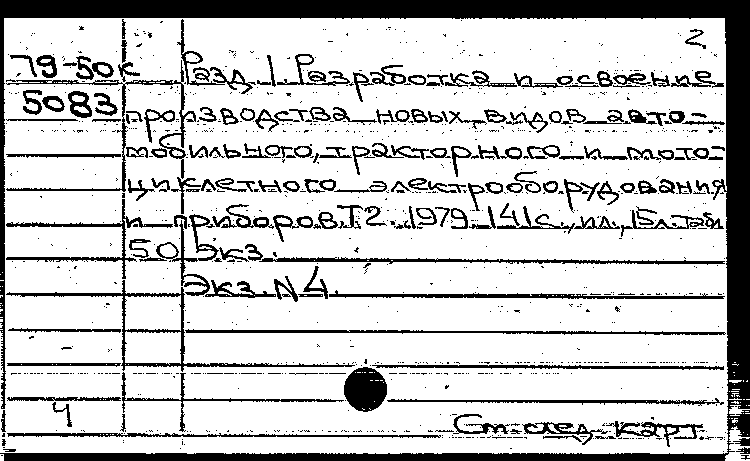 2
79-50к Разд. 1. Разработка и освоение
5083 производства новых видов авто-
мобильного, тракторного и мото-
циклетного электрооборудования
и приборов. Т2. 1979. 141с., ил., 15л. табл
50 экз.
Экз. N4.
Ч
См. след. карт.